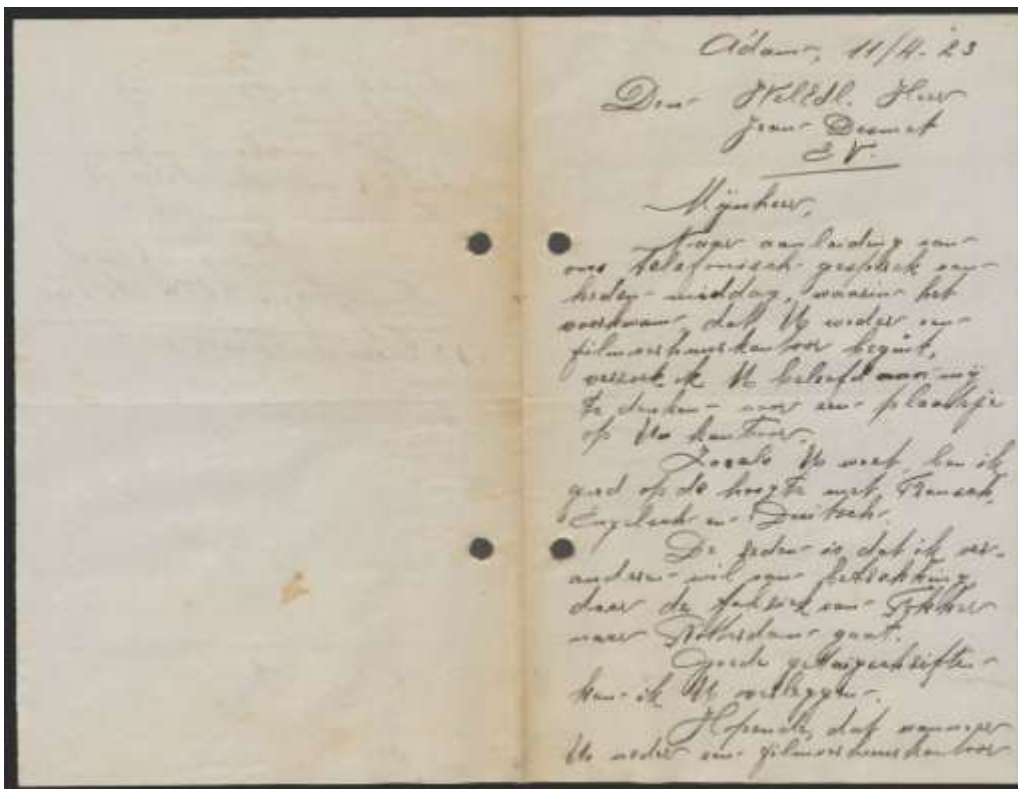 A'dam, 11/4-23
Den WelEdl. Heer
Jean Desmet
E V.
Mijnheer,
Naar aanleiding van
ons telefonisch gesprek van
heden-middag, waarin het
voorkwam, dat U weder een
filmverhuurkantoor begint,
verzoek ik U beleefd aan mij
te denken voor een plaatsje
op Uw kantoor.
Zooals U weet, ben ik
goed op de hoogte met Fransch,
Engelsch en Duitsch.
De reden is dat ik ver-
anderen wil van betrekking,
daar de fabriek van
naar Rotterdam gaat.
Goede getuigschriften
kan ik U overleggen.
Hopende, dat wanneer
U weder een filmverhuurkantoor